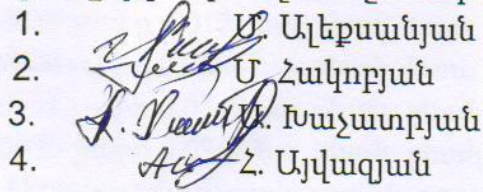 1. Մ. Ալեքսանյան
2. Մ Հակոբյան
3. Խաչատրյան
4. Հ. Այվազյան